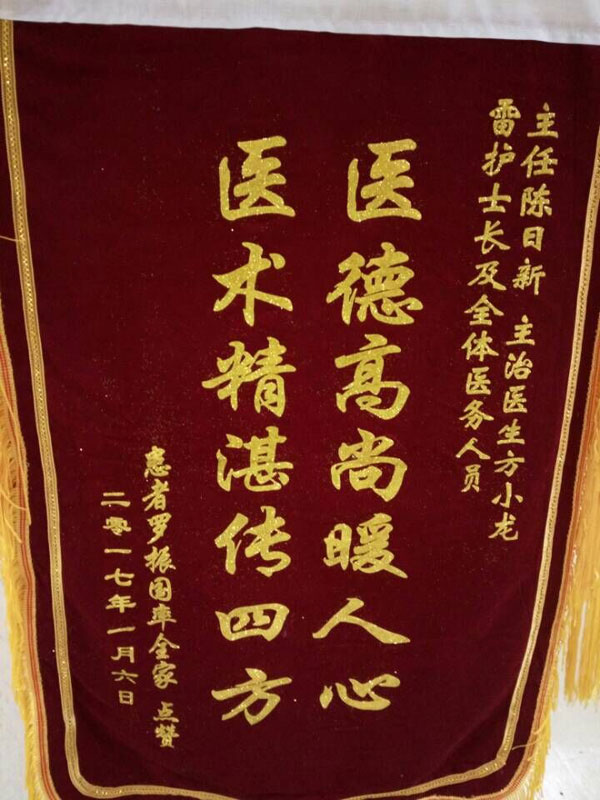 主任陈日新 主治医生方小龙
雷护士长及全体医务人员
医德高尚暖人心
医术精湛传四方
患者罗振国率全家 点赞
二零一七年一月六日